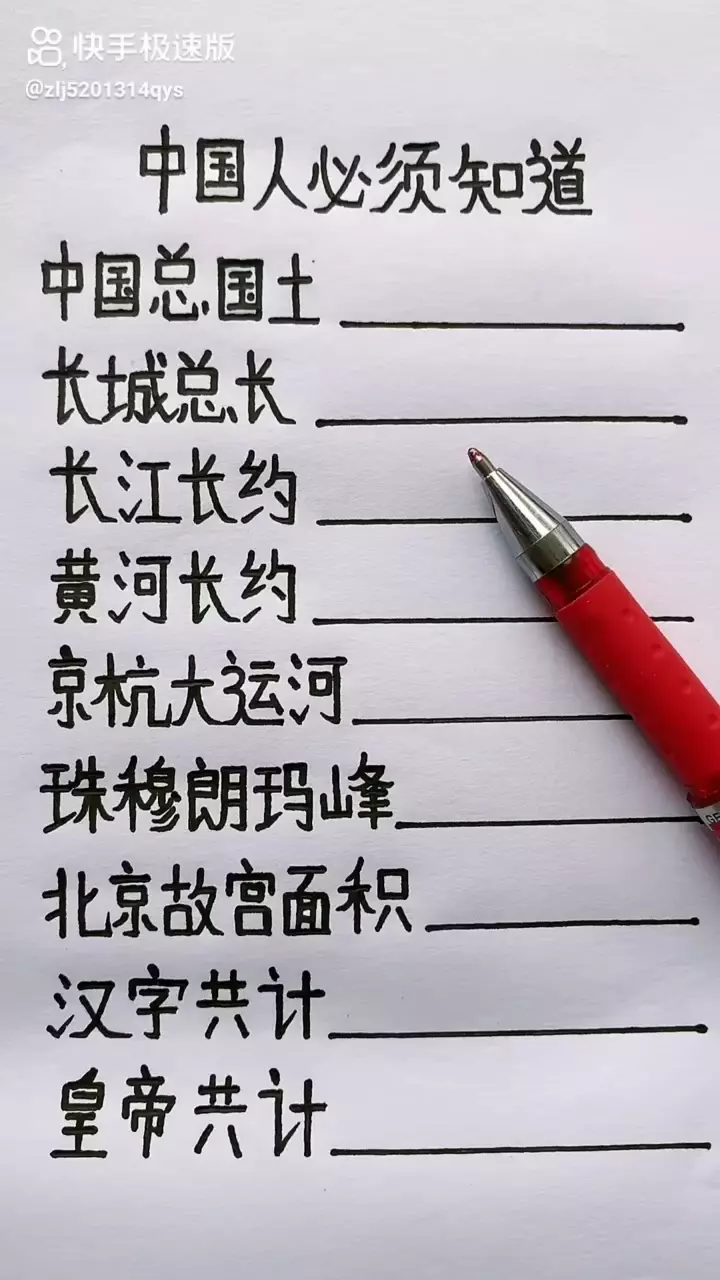 快手极速版
@zlj5201314qys
中国人必须知道
中国总国土
长城总长
长江长约
黄河长约
京杭大运河
珠穆朗玛峰
北京故宫面积
汉字共计
皇帝共计